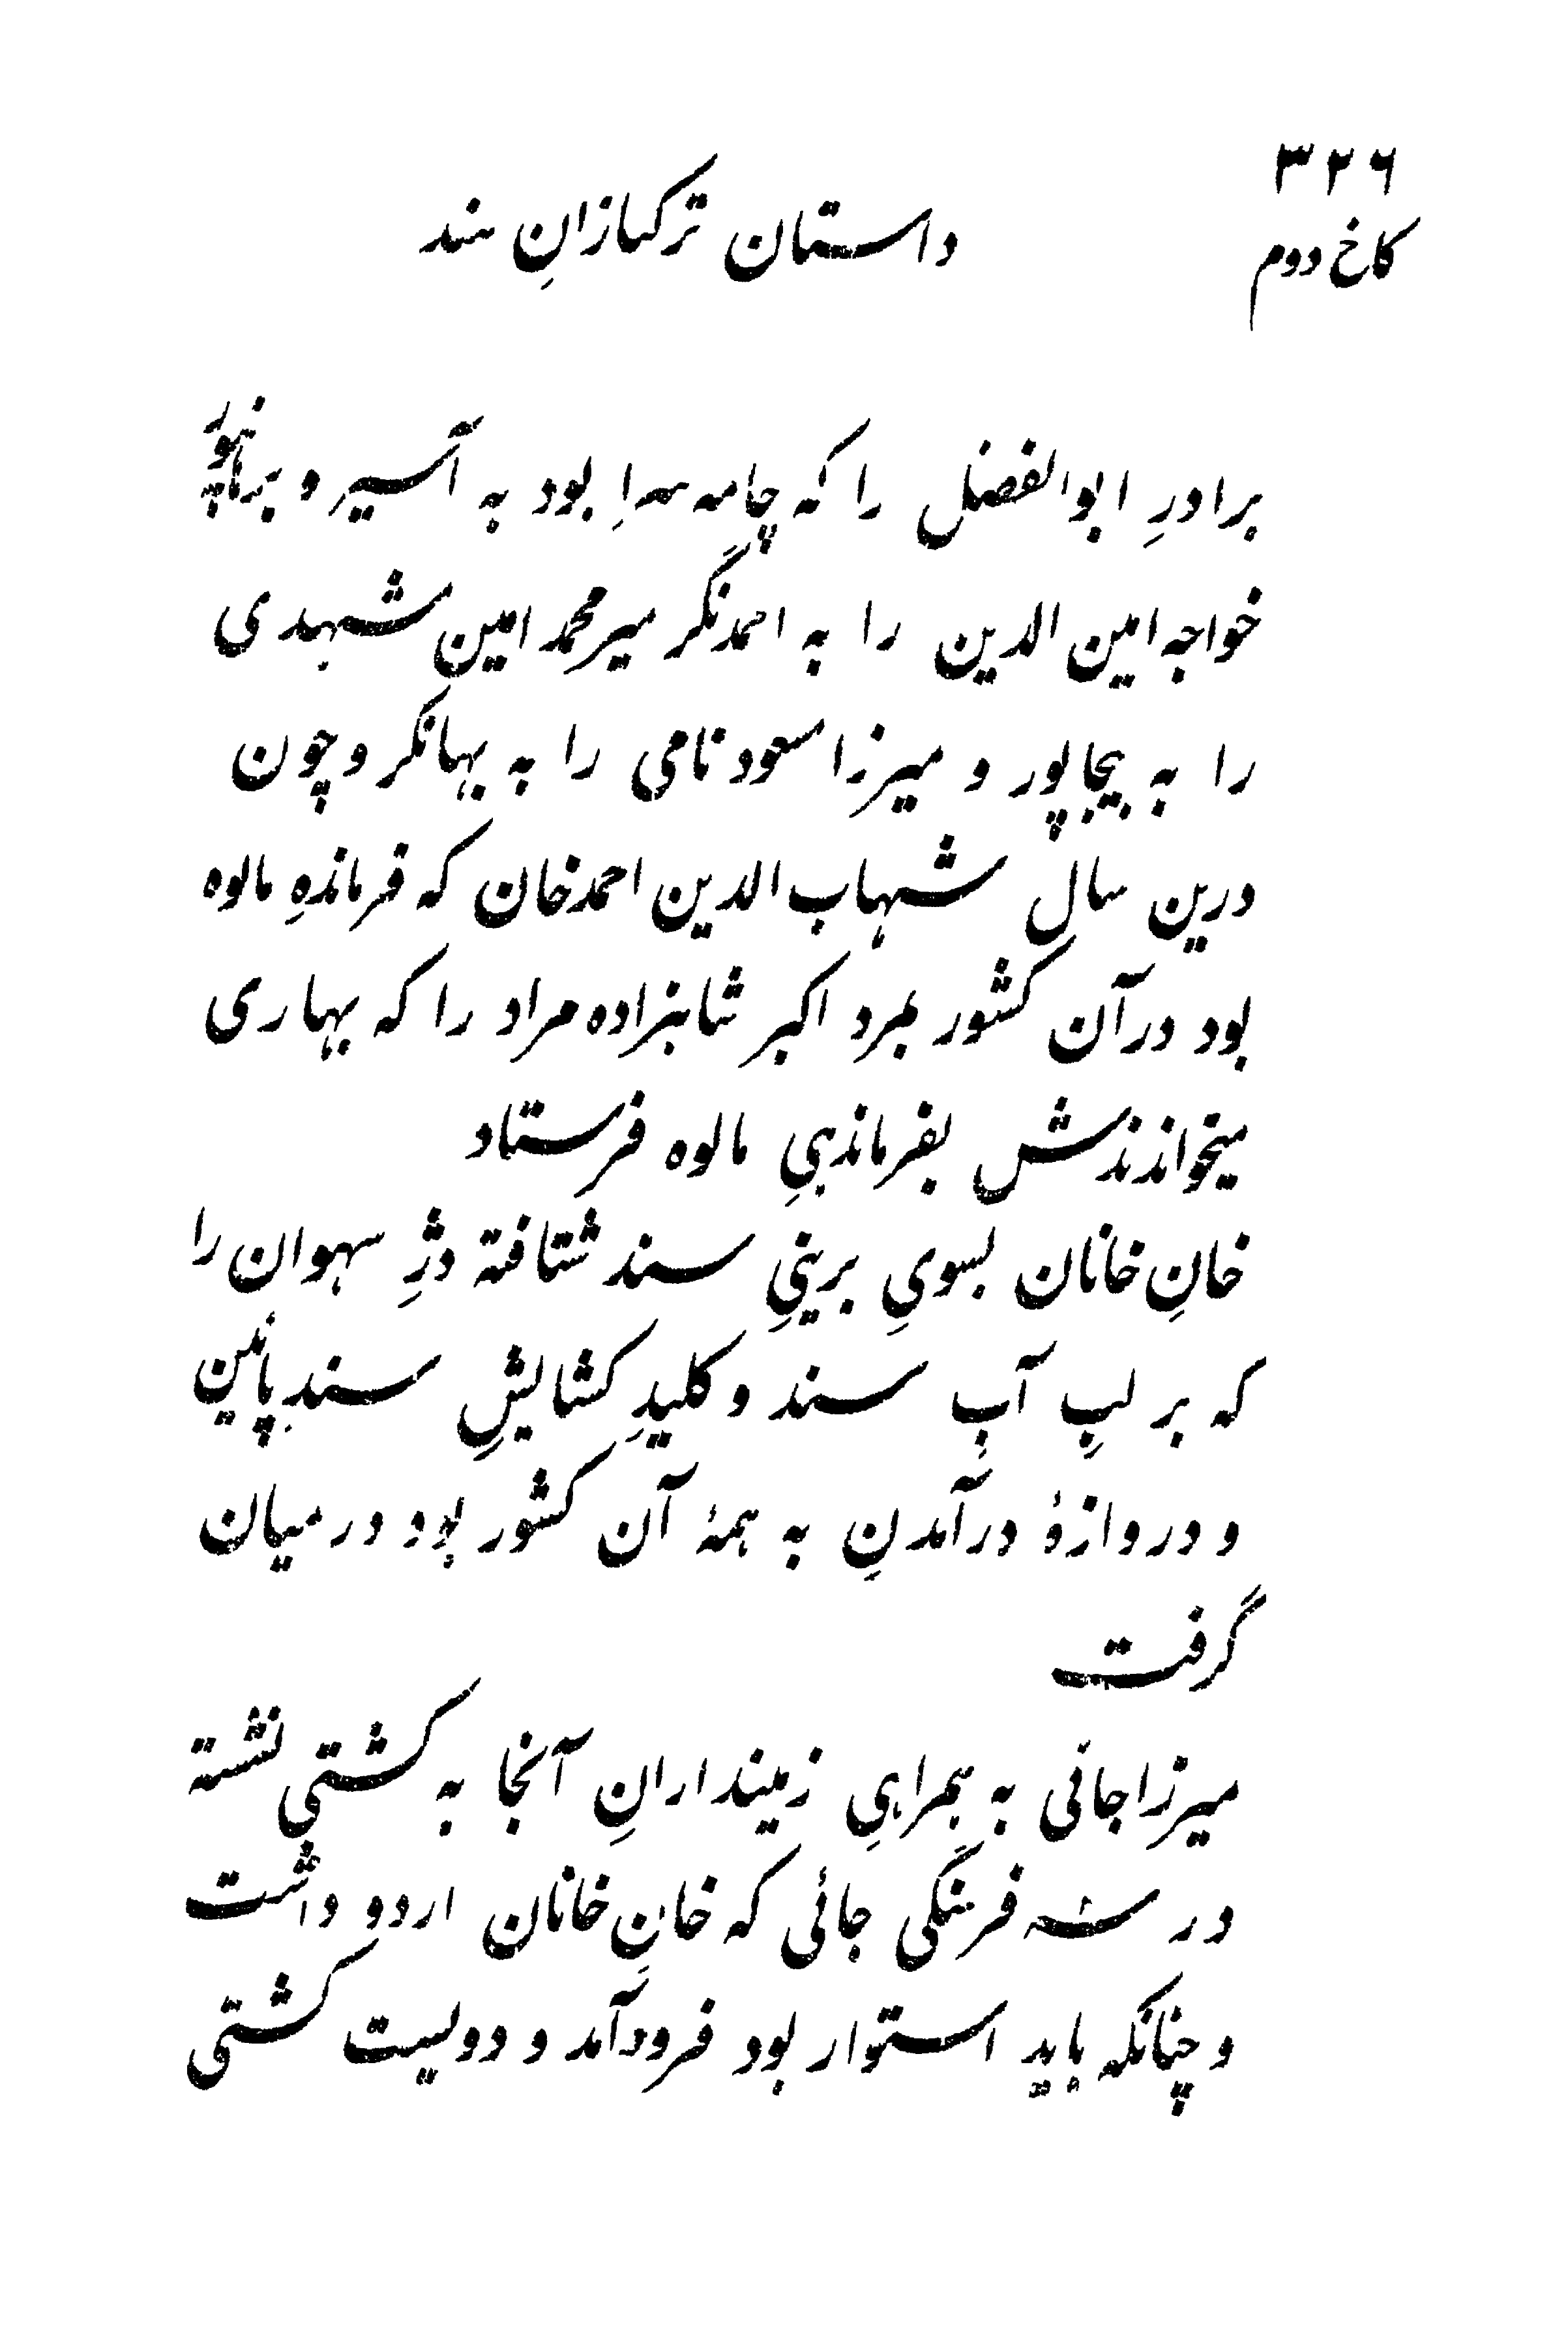 ۳۲۶
کاخ دوم
داستان ترکتازانِ هند
برادرِ ابوالفضل را که چامه سرا بود به آسیر و برهانپور
خواجه امین الدین را به احمدنگر میر محمد امین مشهدی
را به بیجاپور و میرزا مسعود نامی را به بهانگر و چون
درین سال شهاب الدین احمد خان که فرماندهِ مالوه
بود در آن کشور بمرد اکبر شاهزاده مراد را که بهاری
میخواندندش بفرماندهیِ مالوه فرستاد
خانِ خانان بسویِ برینیِ سند شتافته دژِ سهوان را
که بر لبِ آبِ سند و کلیدِ کشایشِ سندِ پائین
و دروازهٔ درآمدنِ به همهٔ آن کشور بود در میان
گرفت
میرزا جانی به همراهیِ زمیندارانِ آنجا به کشتی نشسته
در سه فرهنگی جائی که خانِ خانان اردو داشت
و چنانکه باید استوار بود فرود آمد و دویست کشتی